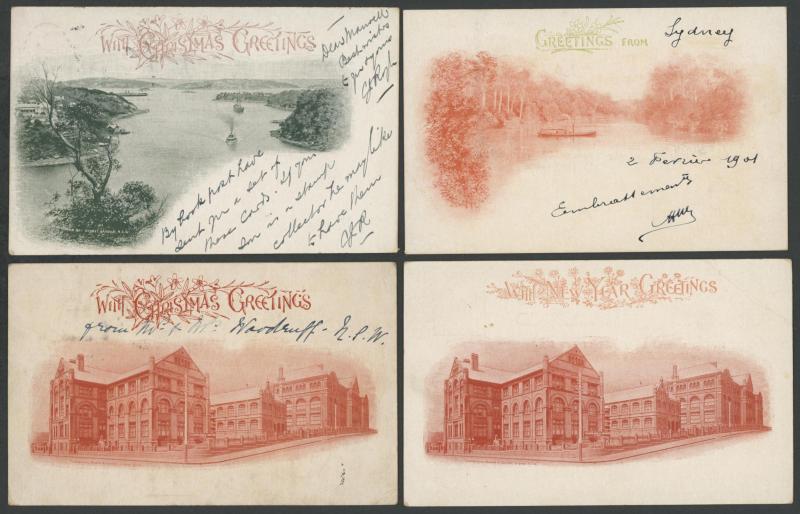 With Christmas Greetings
Dear Maxwell
Best wishes
to you
By book post have
sent you a set of
these cards. If your
son is a stamp
collector he may like
to have them
Greetings from Sydney
2 Fevrier 1901
Embrassements
With Christmas Greetings
from Mr & Mrs Woodruff - N.S.W.
With New Year Greetings